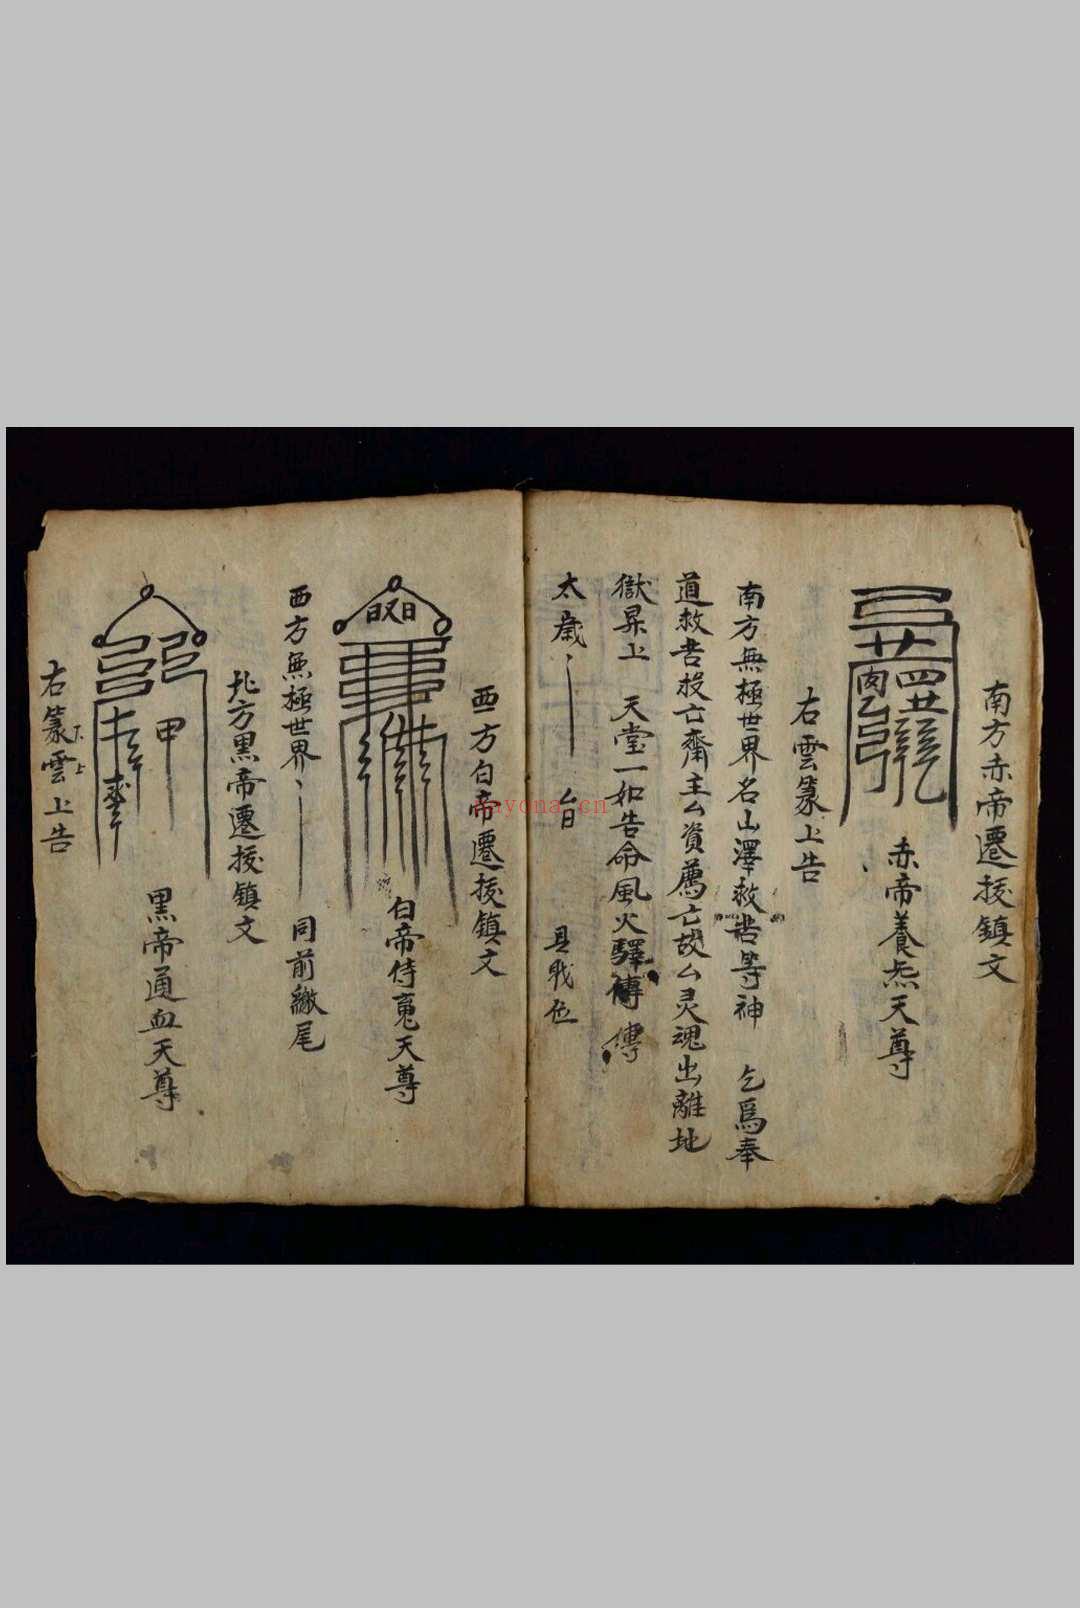 南方赤帝遷拔鎮文
赤帝養炁天尊
右雲篆上告
南方無極世界名山澤救苦等神 乞爲奉
道救苦拔亡齋主厶資薦亡故厶灵魂出離地
獄昇上 天堂一如告命風火驛傳 傳
太歲 厶日 具職位
西方白帝遷拔鎮文
白帝侍䰟天尊
西方無極世界 同前繳尾
北方黑帝遷拔鎮文
黑帝通血天尊
右篆雲上告
下上
nayona.cn